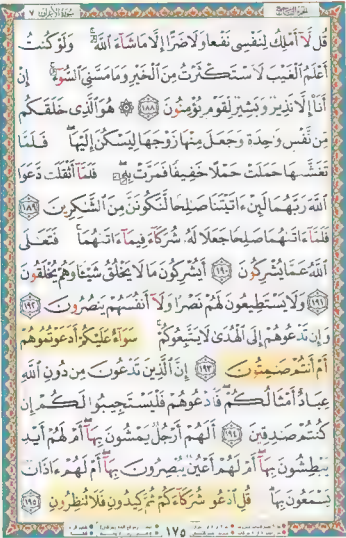 سورة الأعراف ٧
قُل لَّا أَمْلِكُ لِنَفْسِي نَفْعًا وَلَا ضَرًّا إِلَّا مَا شَاءَ اللَّهُ ۚ وَلَوْ كُنتُ
أَعْلَمُ الْغَيْبَ لَاسْتَكْثَرْتُ مِنَ الْخَيْرِ وَمَا مَسَّنِيَ السُّوءُ ۚ إِنْ
أَنَا إِلَّا نَذِيرٌ وَبَشِيرٌ لِّقَوْمٍ يُؤْمِنُونَ ١٨٨ ۞ هُوَ الَّذِي خَلَقَكُم
مِّن نَّفْسٍ وَاحِدَةٍ وَجَعَلَ مِنْهَا زَوْجَهَا لِيَسْكُنَ إِلَيْهَا ۖ فَلَمَّا
تَغَشَّاهَا حَمَلَتْ حَمْلًا خَفِيفًا فَمَرَّتْ بِهِ ۖ فَلَمَّا أَثْقَلَت دَّعَوَا
اللَّهَ رَبَّهُمَا لَئِنْ آتَيْتَنَا صَالِحًا لَّنَكُونَنَّ مِنَ الشَّاكِرِينَ ١٨٩
فَلَمَّا آتَاهُمَا صَالِحًا جَعَلَا لَهُ شُرَكَاءَ فِيمَا آتَاهُمَا ۚ فَتَعَالَى
اللَّهُ عَمَّا يُشْرِكُونَ ١٩٠ أَيُشْرِكُونَ مَا لَا يَخْلُقُ شَيْئًا وَهُمْ يُخْلَقُونَ
١٩١ وَلَا يَسْتَطِيعُونَ لَهُمْ نَصْرًا وَلَا أَنفُسَهُمْ يَنصُرُونَ ١٩٢
وَإِن تَدْعُوهُمْ إِلَى الْهُدَىٰ لَا يَتَّبِعُوكُمْ ۚ سَوَاءٌ عَلَيْكُمْ أَدَعَوْتُمُوهُمْ
أَمْ أَنتُمْ صَامِتُونَ ١٩٣ إِنَّ الَّذِينَ تَدْعُونَ مِن دُونِ اللَّهِ
عِبَادٌ أَمْثَالُكُمْ ۖ فَادْعُوهُمْ فَلْيَسْتَجِيبُوا لَكُمْ إِن
كُنتُمْ صَادِقِينَ ١٩٤ أَلَهُمْ أَرْجُلٌ يَمْشُونَ بِهَا ۖ أَمْ لَهُمْ أَيْدٍ
يَبْطِشُونَ بِهَا ۖ أَمْ لَهُمْ أَعْيُنٌ يُبْصِرُونَ بِهَا ۖ أَمْ لَهُمْ آذَانٌ
يَسْمَعُونَ بِهَا ۗ قُلِ ادْعُوا شُرَكَاءَكُمْ ثُمَّ كِيدُونِ فَلَا تُنظِرُونِ ١٩٥
١٧٥